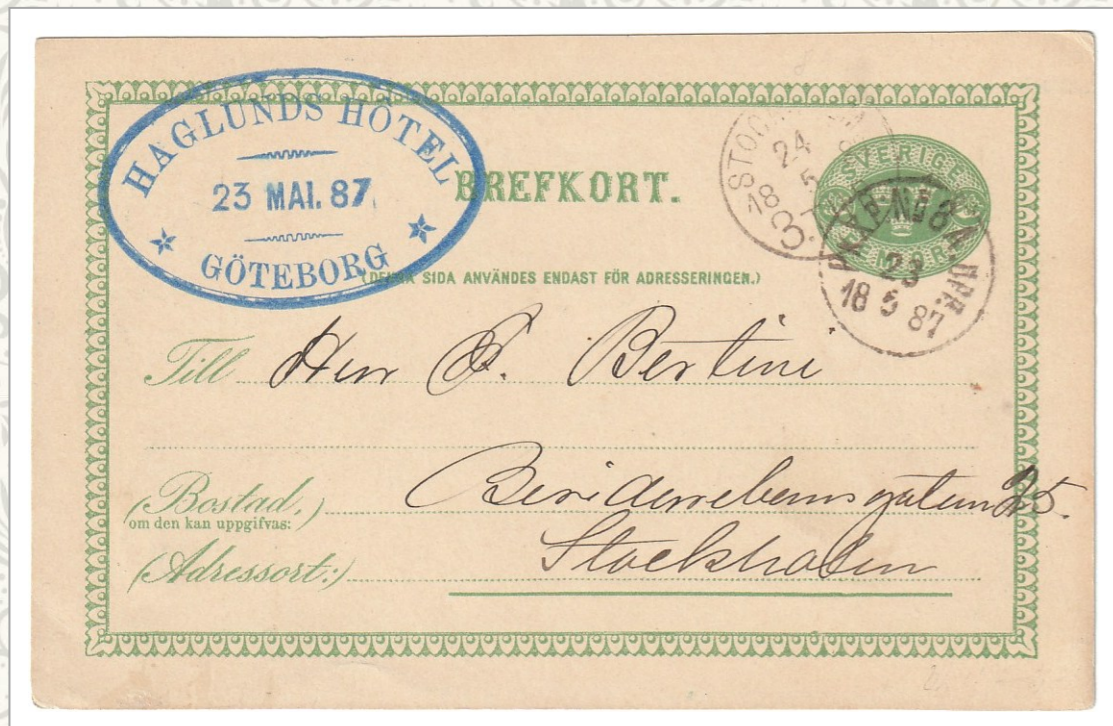 HAGLUNDS HÔTEL
23 MAI. 87.
GÖTEBORG
BREFKORT.
(DENNA SIDA ANVÄNDES ENDAST FÖR ADRESSERINGEN.)
STOCKHOLM
24
5
18 87
SVERIGE
PKXP. Nº 8 A. UPP.
23
18 5 87
Till Herr Bertini
(Bostad,)
om den kan uppgifvas:
25.
(Adressort:)
Stockholm